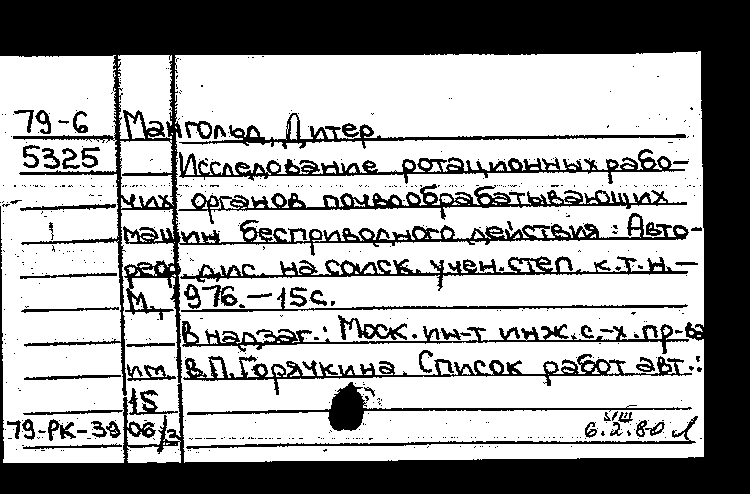 79-6 Мангольд, Дитер.
5325 Исследование ротационных рабо-
чих органов почвообрабатывающих
машин бесприводного действия: Авто-
реф. дис. на соиск. учен. степ. к.т.н.—
М., 1976.—15с.
В надзаг.: Моск. ин-т инж. с.-х. пр-ва
им. В.П. Горячкина. Список работ авт.:
15
79-РК-39 06/3 6.2.80